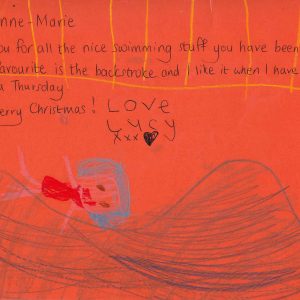 nne-Marie
ou for all the nice swimming stuff you have been
favourite is the backstroke and I like it when I have
a Thursday
erry Christmas! Love
Lucy
xxx